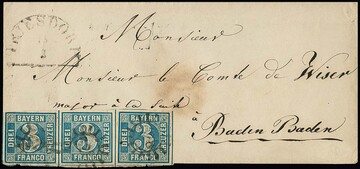 Monsieur
Monsieur le Comte de Wiser
major à la suite
à
Baden Baden
BAYERN
DREI
3
KREUZER
FRANCO
BAYERN
DREI
3
KREUZER
FRANCO
BAYERN
DREI
3
KREUZER
FRANCO